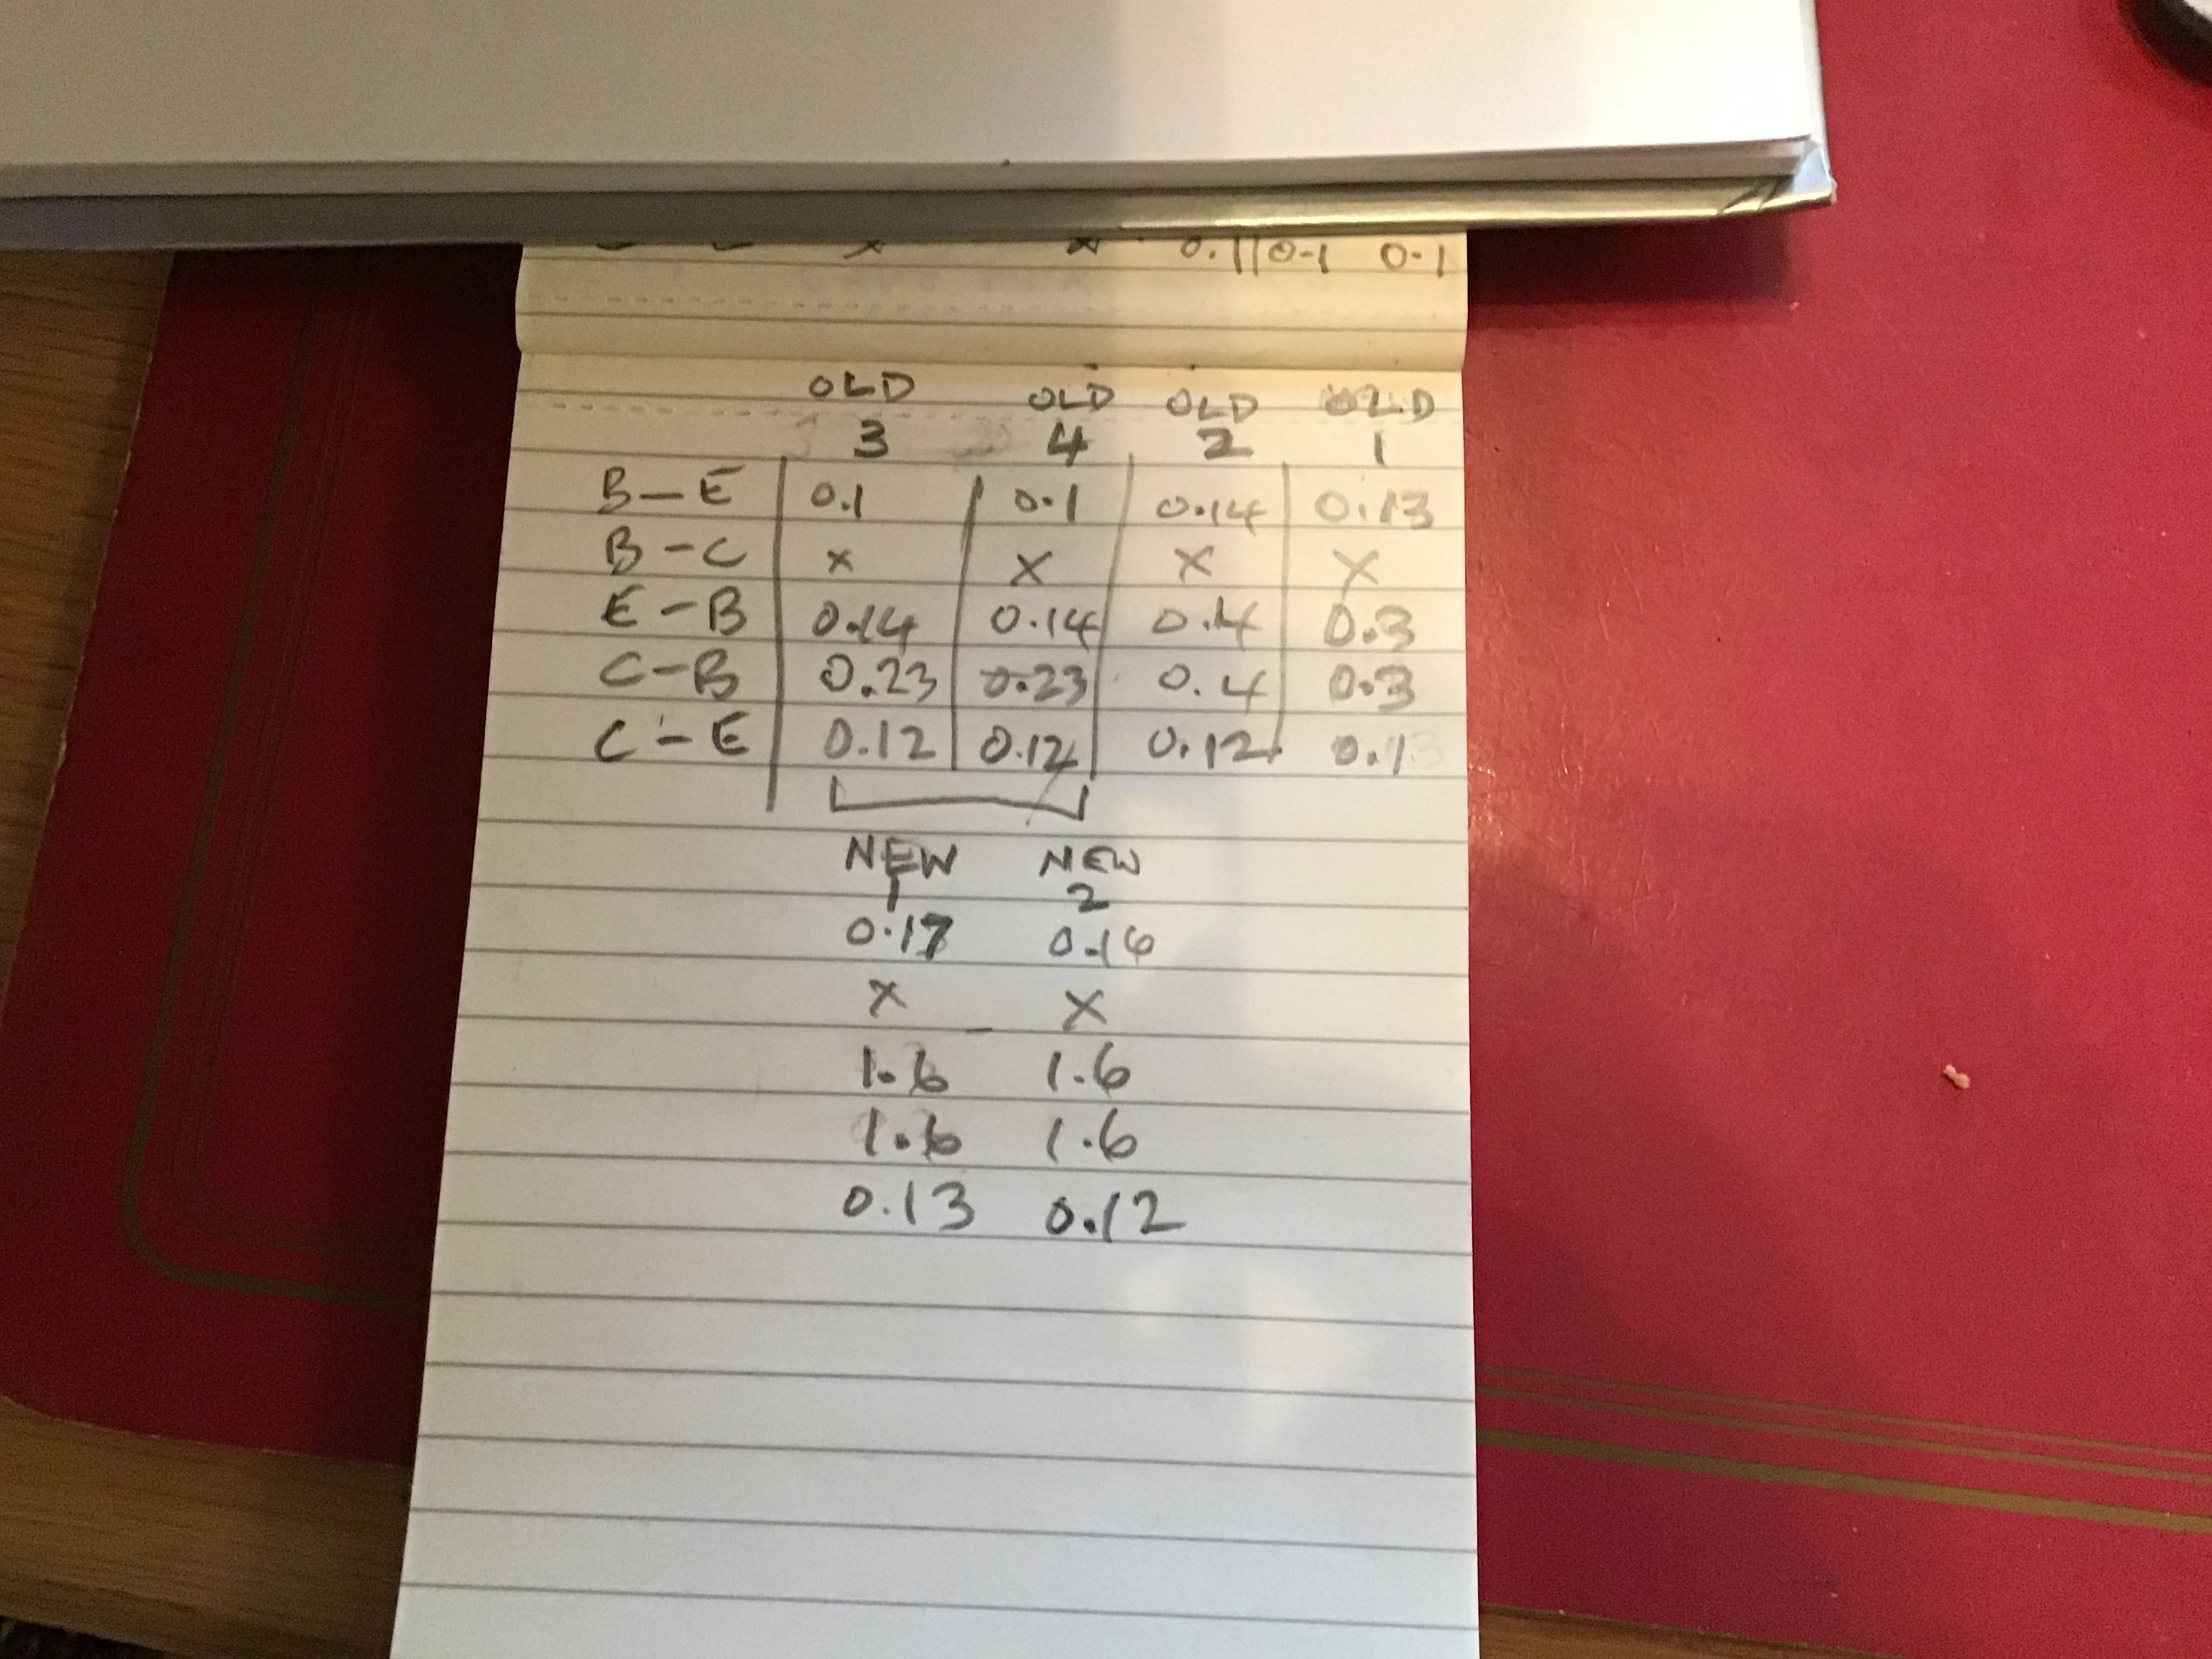 0.1 0.1 0.1
OLD OLD OLD OLD
3 4 2 1
B-E 0.1 0.1 0.14 0.13
B-C x X X X
E-B 0.14 0.14 0.4 0.3
C-B 0.23 0.23 0.4 0.3
C-E 0.12 0.12 0.12 0.13
NEW NEW
1 2
0.17 0.16
x X
1.6 1.6
1.6 1.6
0.13 0.12